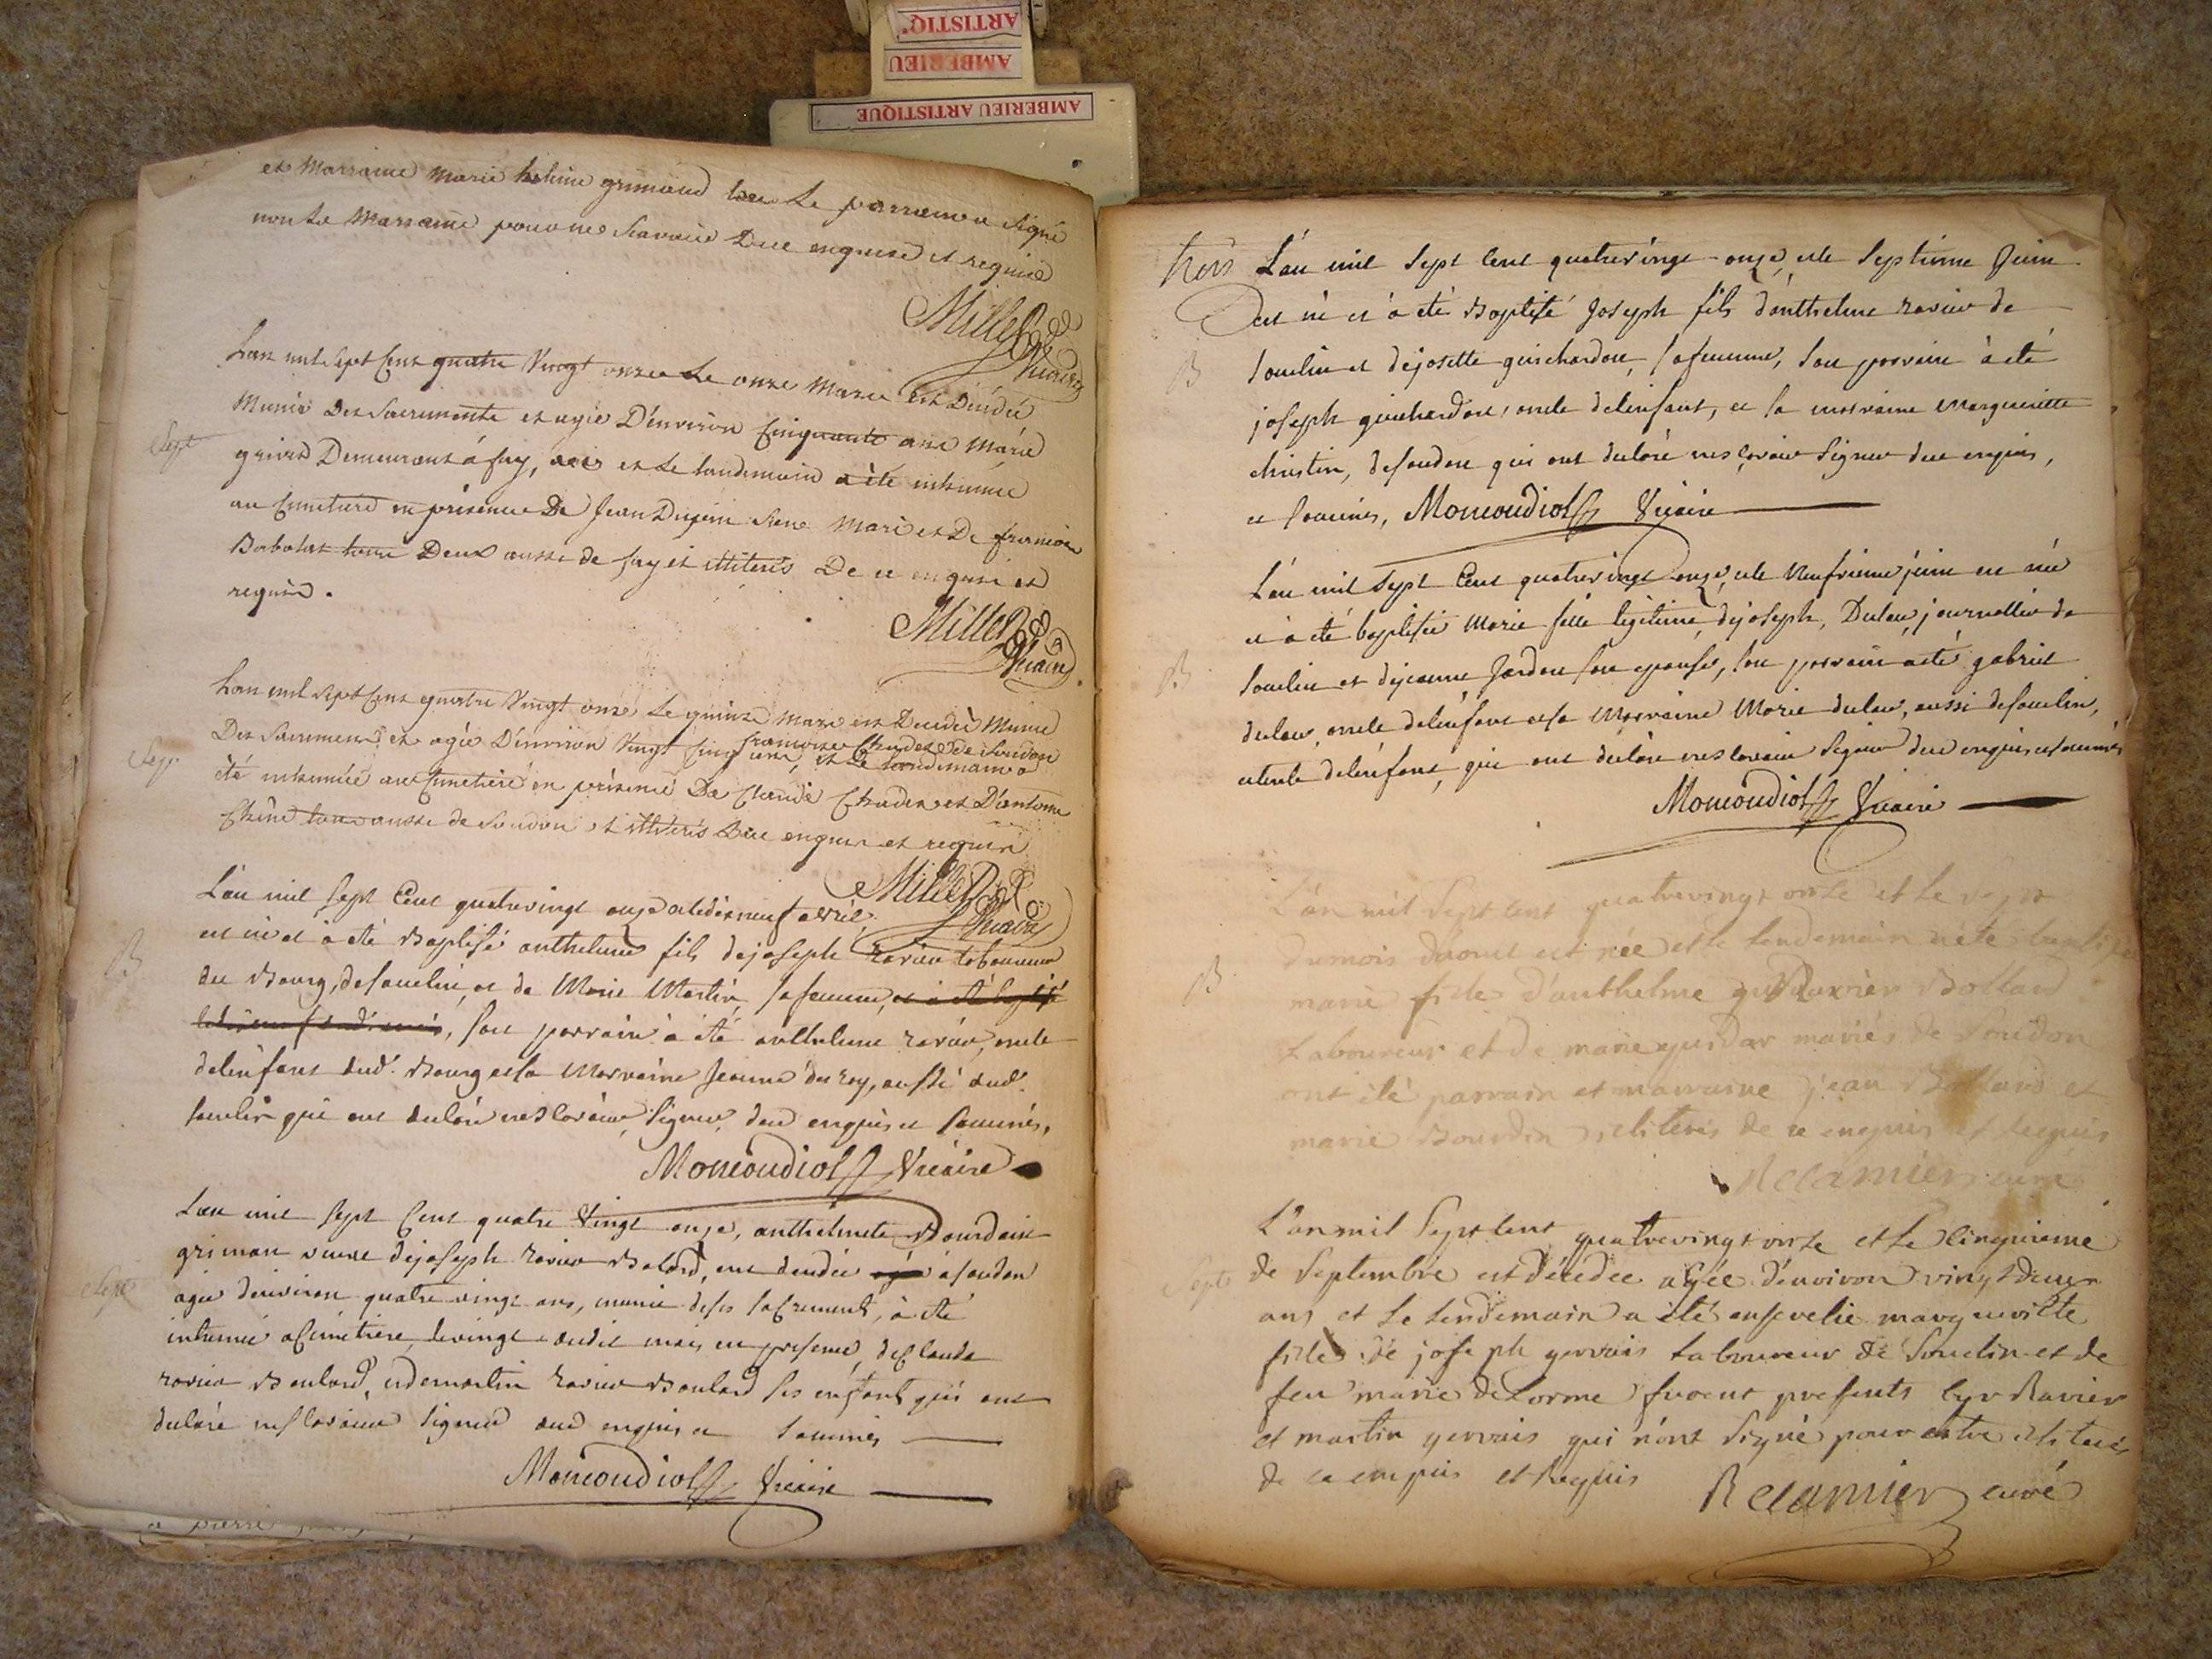 ARTISTIQ
AMBERIEU
AMBERIEU ARTISTIQUE
et Marraine Marie helaine grimaud le parrain a signé
non La Marraine pour ne Scavoir De ce enquise et requise
Millet
Vicaire
Lan mil Sept Cent quatre Vingt onze Le onze Mars est Décédée
Sept
Munie Des Sacremente et agée D'environ Cinquante ans Marie
Demeurant à fay, et Le landemain a été inhumée
au Cimetiere en présence De Jean Dujein Sieur Mari et De francois
Deux aussi de fay et illiterés De ce enquis et
requis.
Millet
Vicaire
Lan mil Sept Cent quatre Vingt onze Le quinze Mars est Decedée Munie
francoise de Soudon
Sep.
Des Sacremens et agée D'environ Vingt Cinq ans, et Le landemain a
été inhumée au Cimetiere en présence De Claude et D'antoine
aussi de Soudon et illiterés De ce enquis et requis
Millet
Vicaire
L'an mil Sept Cent quatrevingt onze et le dix neuf avril
B
est né et à été Baptisé anthelme fils de joseph ravier laboureur
du Bourg, de souclin, et de Marie Martin, sa femme, et à été baptisé
, son parrain à été anthelme ravier, oncle
de l'enfant dud. Bourg et la Marraine Jeanne du roy, aussi dud.
souclin qui ont declaré ne sçavoir signer, de ce enquis et sommés,
Moncoudiol Vicaire
L'an mil sept Cent quatre Vingt onze, anthelmete Bourdain
griman veuve de joseph ravier Bolard, est decedée à soudon
Sept
agée d'environ quatre vingt ans, munie de ses sacrements, à été
inhumée a Cimetiere le vingt dudit mois en presence, de Claude
ravier Boulard, et de martin ravier Boulard ses enfants qui ont
declaré ne sçavoir signer de ce enquis et sommés
Moncoudiol Vicaire
a pierre
trois
L'an mil sept Cent quatrevingt-onze, et le septieme Juin
est né et à été Baptisé Joseph fils d'anthelme ravier de
B
souclin et de josette guichardon, sa femme, son parrain à été
joseph guichardon, oncle de l'enfant, et la marraine Margueritte
christin, de soudon qui ont declaré ne sçavoir signer de ce enquis,
et sommés, Moncoudiol Vicaire
L'an mil sept Cent quatrevingt onze, et le Neufvieme juin est née
et à été baptisée Marie fille legitime de joseph, Dulau, journallier de
B
souclin et de jeanne Jardon son epouse, son parrain a été gabriel
dulau, oncle de l'enfant et la Marraine Marie dulau, aussi de souclin,
et tante de l'enfant, qui ont declaré ne sçavoir signer de ce enquis et sommés
Moncoudiol Vicaire
L'an mil Sept cent quatrevingt onze et le sept
du mois d'aoust est née et le lendemain a été baptisée
B
marie fille d'anthelme Ravier Bollard
Laboureur et de marie mariés de Soudon
ont été parrain et marraine jean Bollard et
marie Bourdin illiterés de ce enquis et requis
Reclamier curé
L'an mil Sept cent quatrevingt onze et le cinquieme
Sept
de Septembre est décedée agée d'environ vingt deux
ans et le lendemain a été ensevelie marguerite
fille de joseph gervais laboureur de Souclin et de
feu marie delorme furent presents Cyr Ravier
et martin gervais qui n'ont signé pour être illiterés
de ce enquis et Requis Reclamier curé